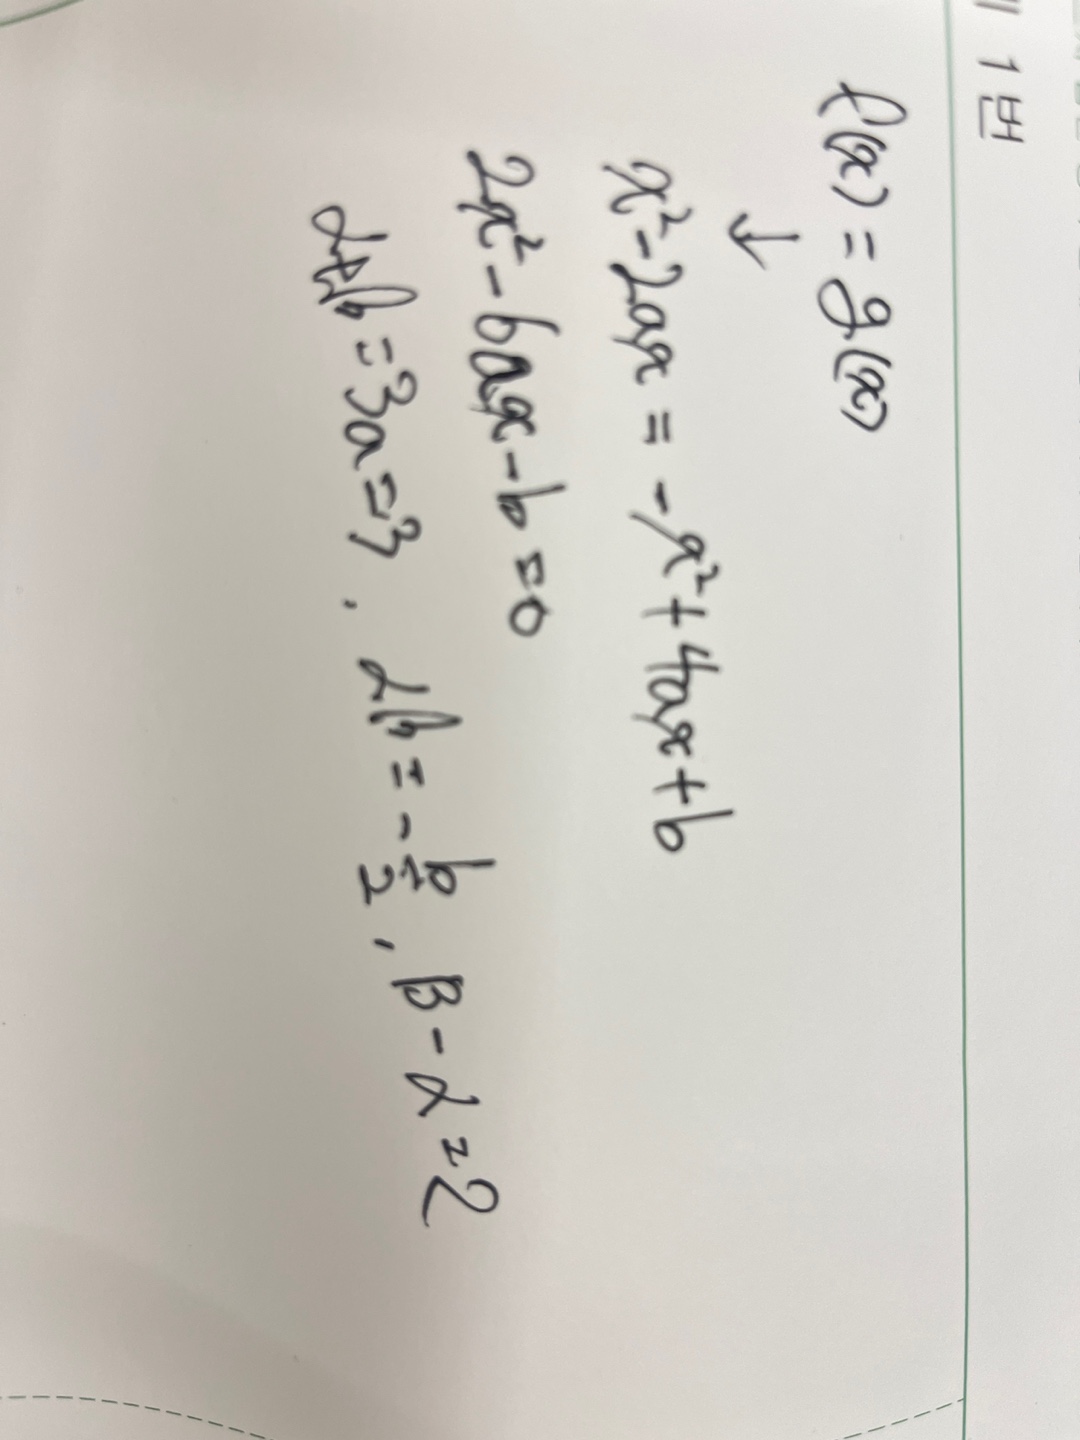 1번
f(x) = g(x)
↓
x²-2ax = -x²+4ax+b
2x²-6ax-b=0
α+β=3a=3, αβ=-b/2, β-α=2